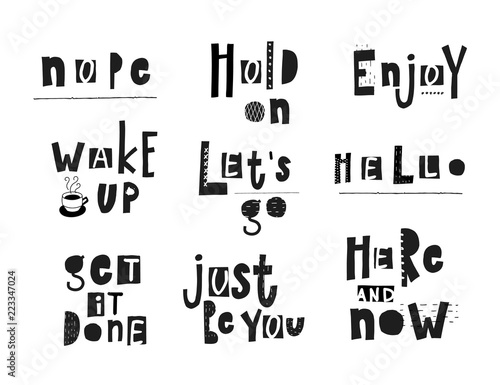 nope
Hold
on
Enjoy
WAKE
UP
LEt's
go
HELLo
gEt
it
DONE
just
be you
HERe
AND
NOW
Adobe Stock | #223347024